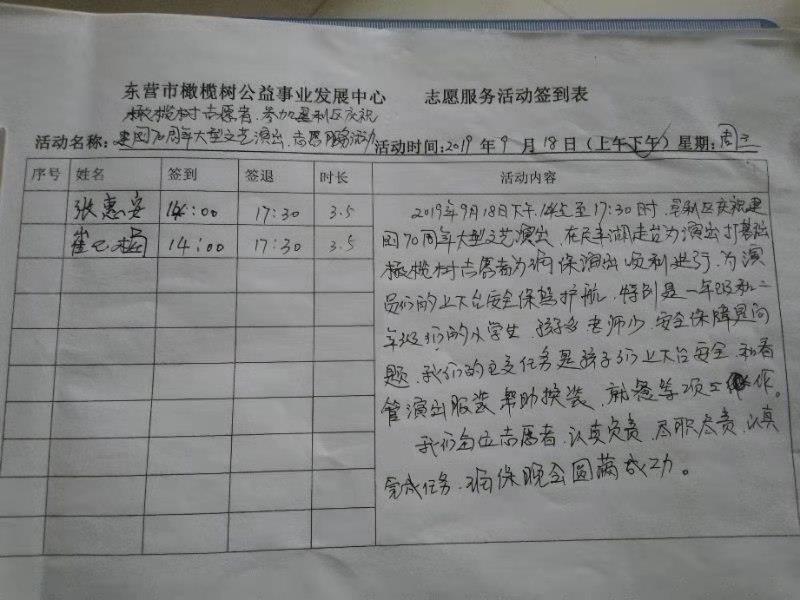 东营市橄榄树公益事业发展中心 志愿服务活动签到表
橄榄树志愿者参加垦利区庆祝
活动名称:建国70周年大型文艺演出志愿服务活动 活动时间:2019年9月18日(上午下午)星期:周三
序号 姓名 签到 签退 时长 活动内容
张惠安 14:00 17:30 3.5
崔 梅 14:00 17:30 3.5
2019年9月18日下午14点至17:30时,垦利区庆祝建
国70周年大型文艺演出,在民丰湖走台为演出打基础
橄榄树志愿者为确保演出顺利进行,为演
员们的上下台安全保驾护航,特别是一年级和二
年级们的小学生,孩子多老师少,安全保障是问
题,我们的主要任务是孩子们上下台安全,和看
管演出服装,帮助换装,就餐等项工作。
我们每位志愿者,认真负责,尽职尽责,认真
完成任务,确保晚会圆满成功。